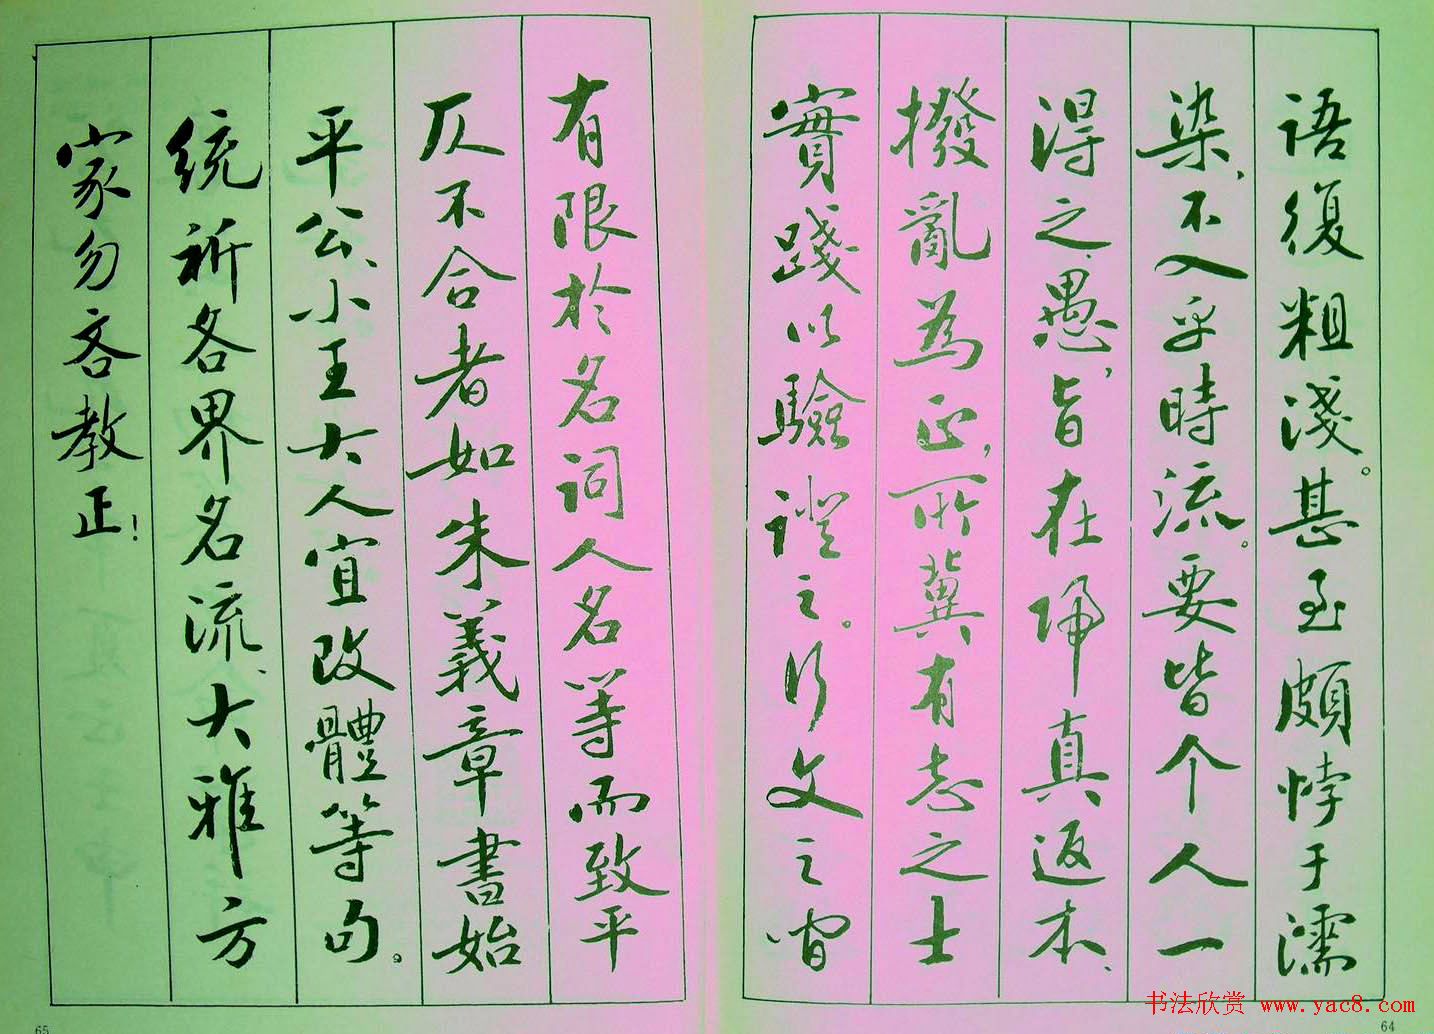 語復粗淺。甚至頗悖于濡
染、不入乎時流。要皆个人一
得之愚，旨在歸真返本、
撥亂為正，所冀有志之士
實踐以驗證之。行文之間
有限於名詞人名等而致平
仄不合者如朱義章書始
平公、小王大人宜改體等句。
統祈各界名流、大雅方
家勿吝教正！
65
64
书法欣赏 www.yac8.com